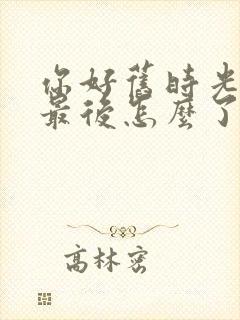 你好舊時光
最後怎麼了
高林密